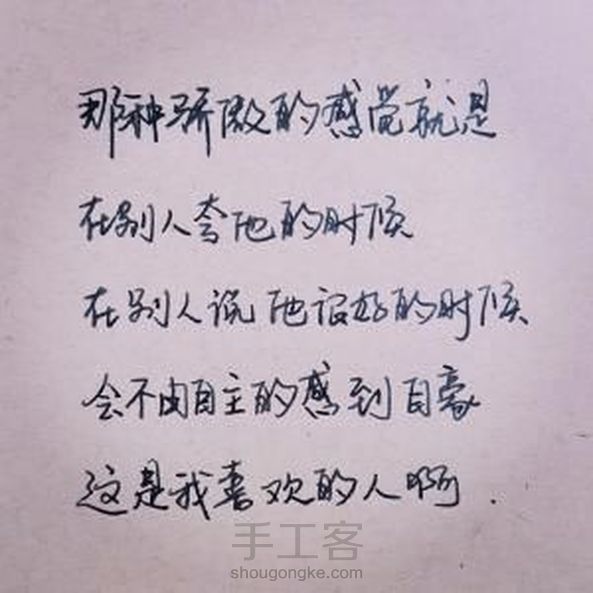 那种骄傲的感觉就是
在别人夸他的时候
在别人说他很好的时候
会不由自主的感到自豪
这是我喜欢的人啊.
手工客
shougongke.com